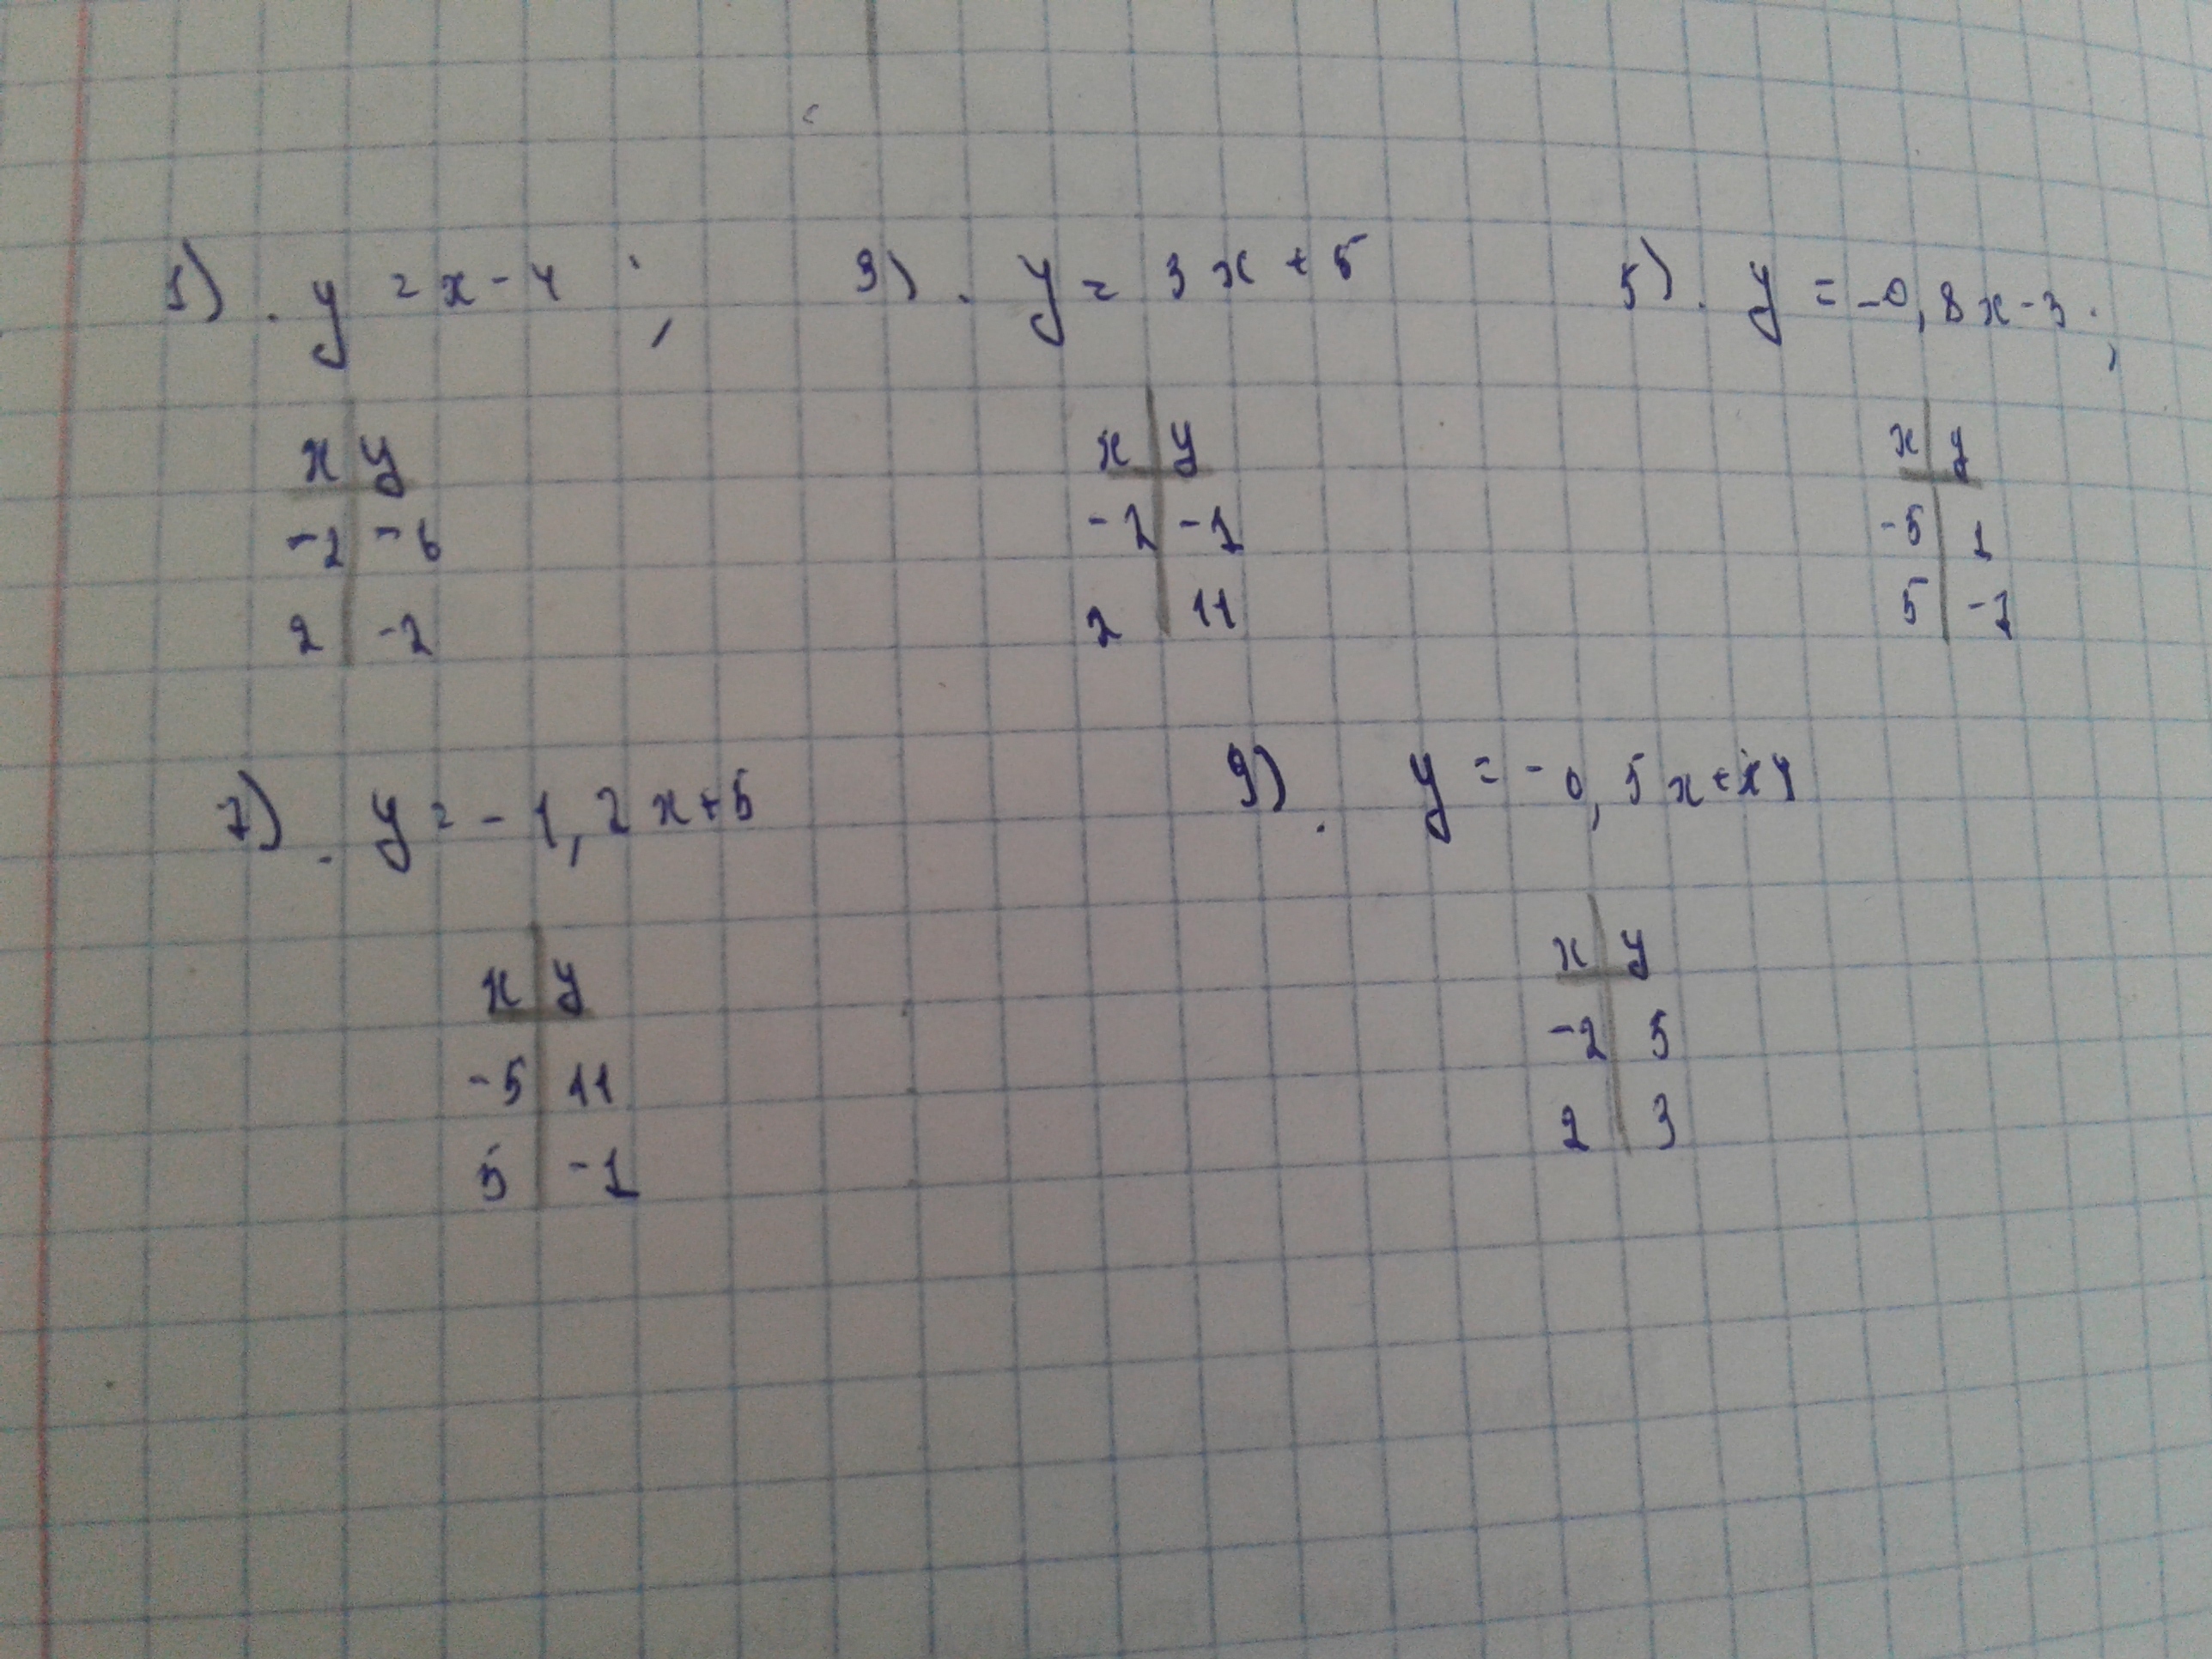 1). y = x - 4 ;
x y
-2 -6
2 -2
3). y = 3x + 5
x y
-2 -1
2 11
5). y = -0,8x - 3 ;
x y
-5 1
5 -7
7). y = -1,2x + 5
x y
-5 11
5 -1
9). y = -0,5x + 4
x y
-2 5
2 3